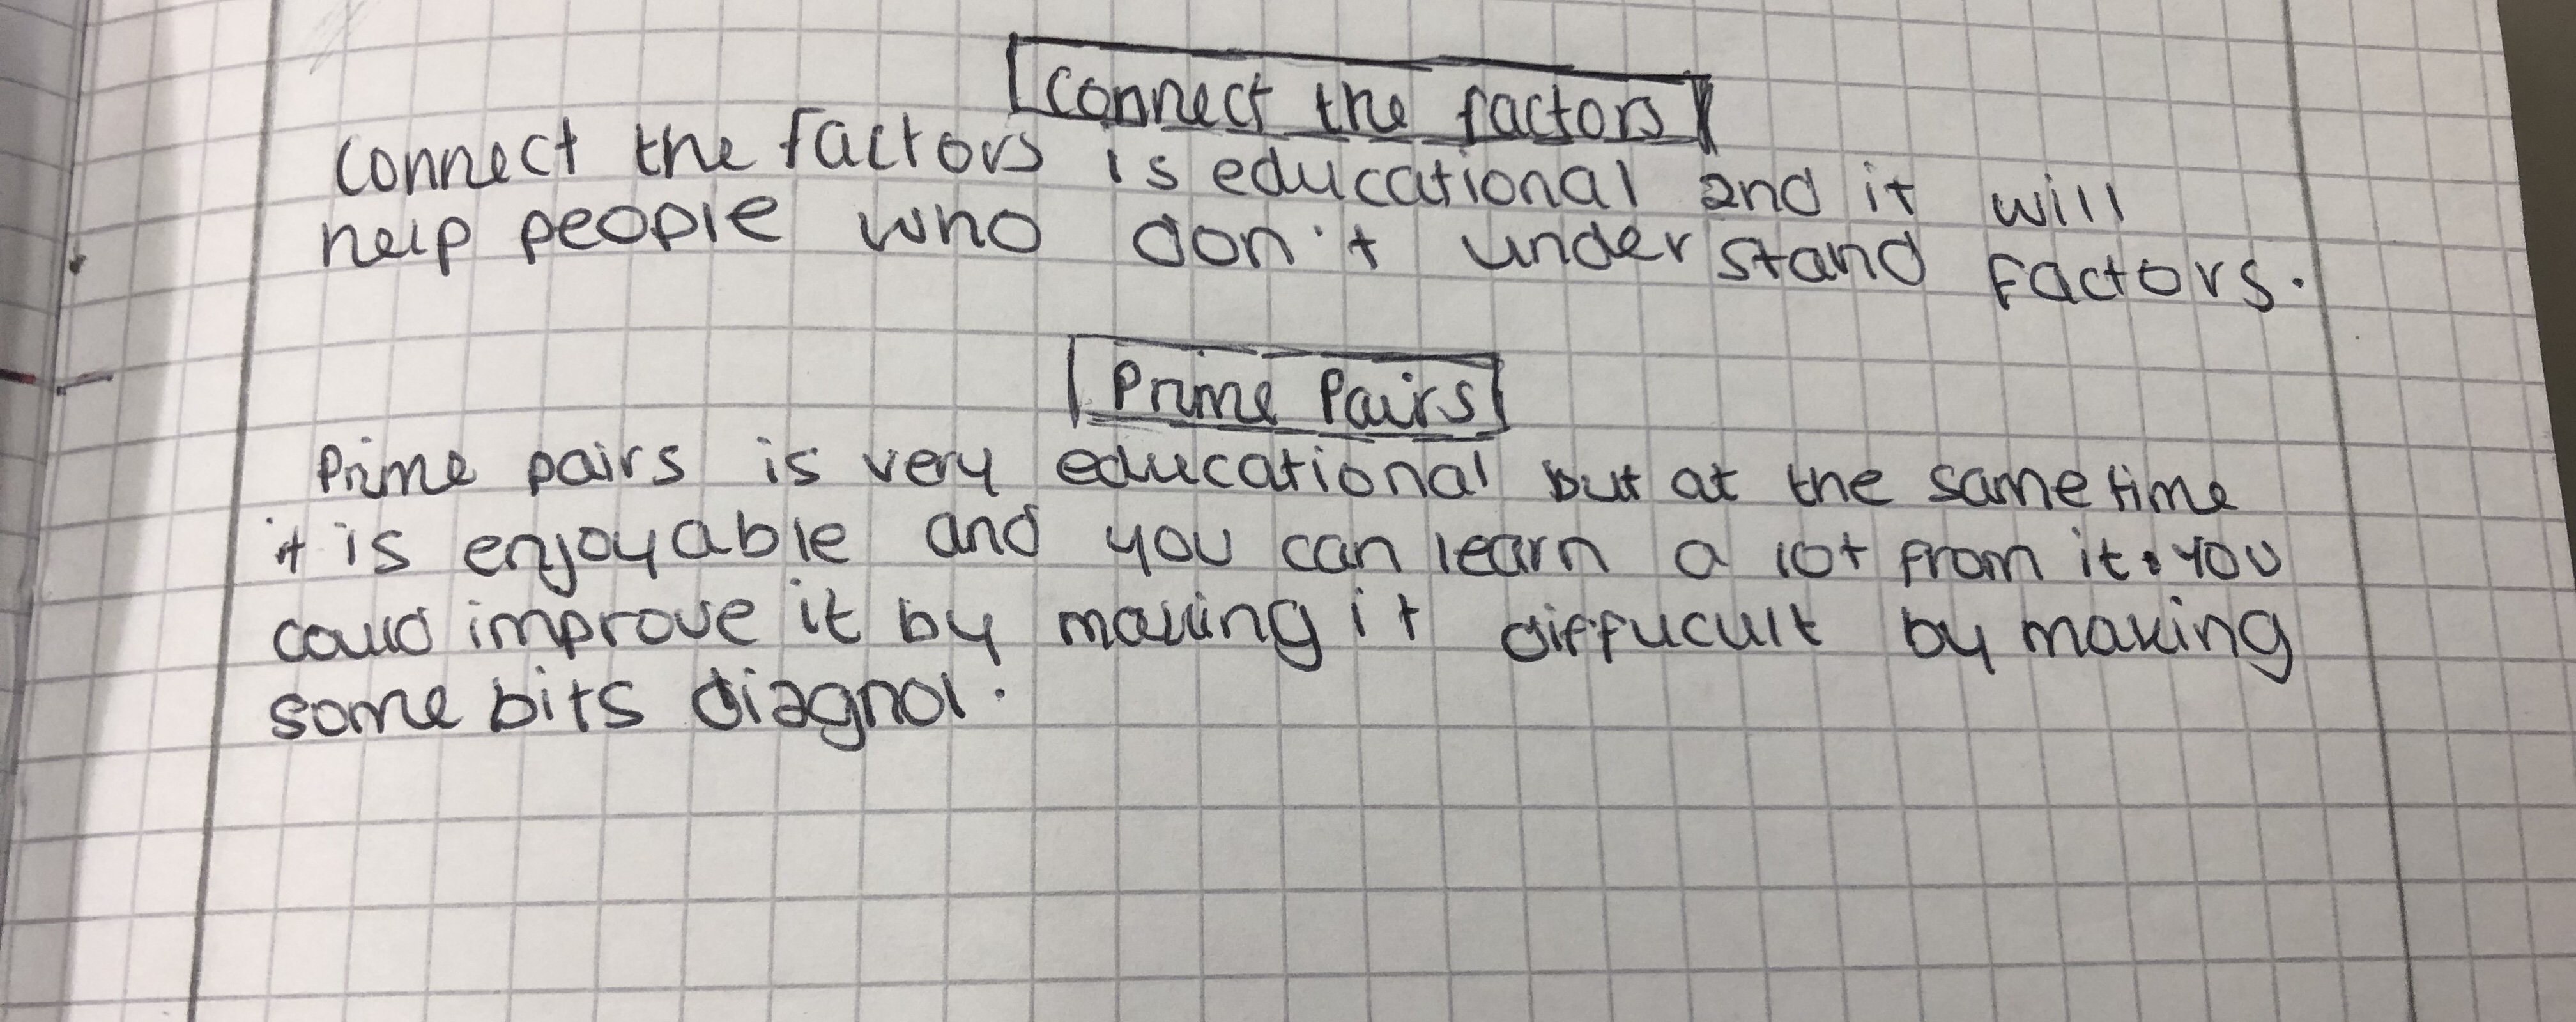 Connect the factors
Connect the factors is educational and it will
help people who don't understand factors.
Prime Pairs
Prime pairs is very educational but at the same time
it is enjoyable and you can learn a lot from it. You
could improve it by making it diffucult by making
some bits diagnol.